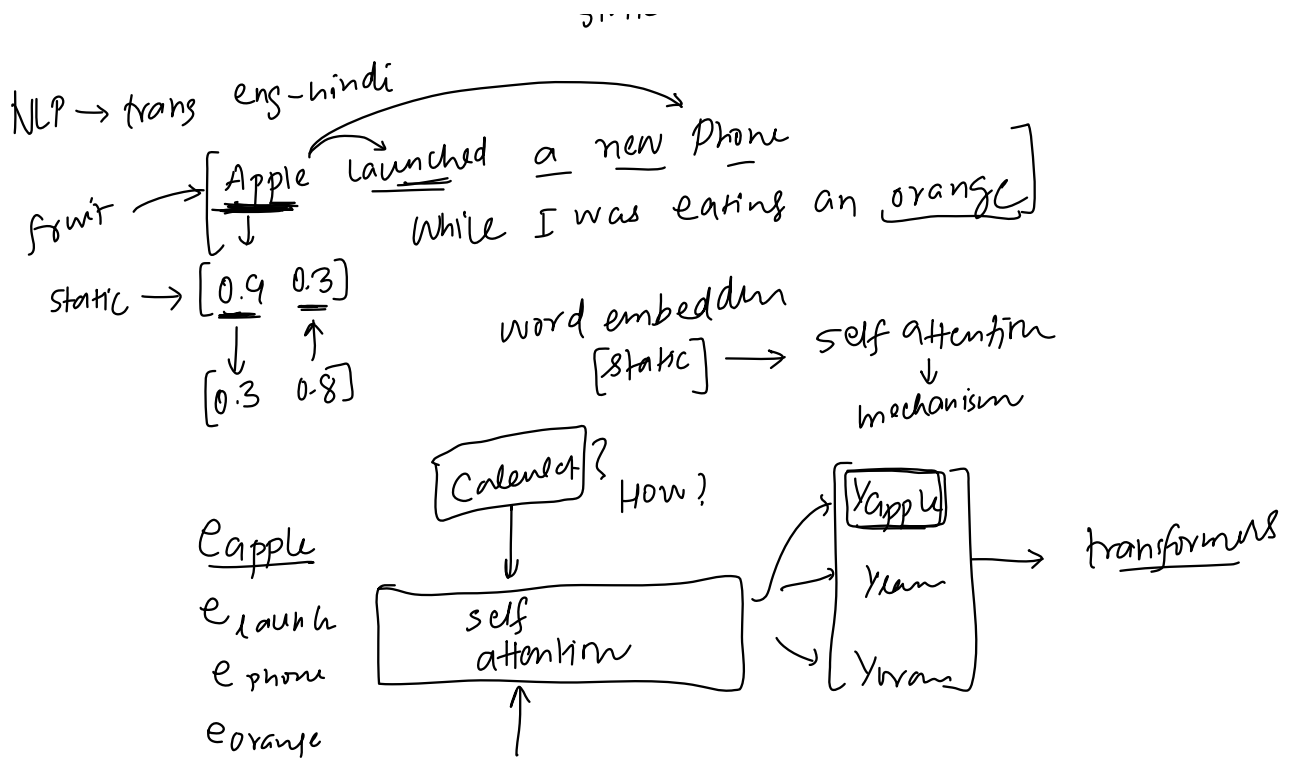 NLP → trans eng-hindi
[Apple launched a new Phone
while I was eating an orange]
fruit →
static → [0.9 0.3]
[0.3 0.8]
word embeddin
[static] → self attention
mechanism
HOW?
eapple
elaunh
ephone
eorange
self
attention
Yapple
Yoran
→ transformers